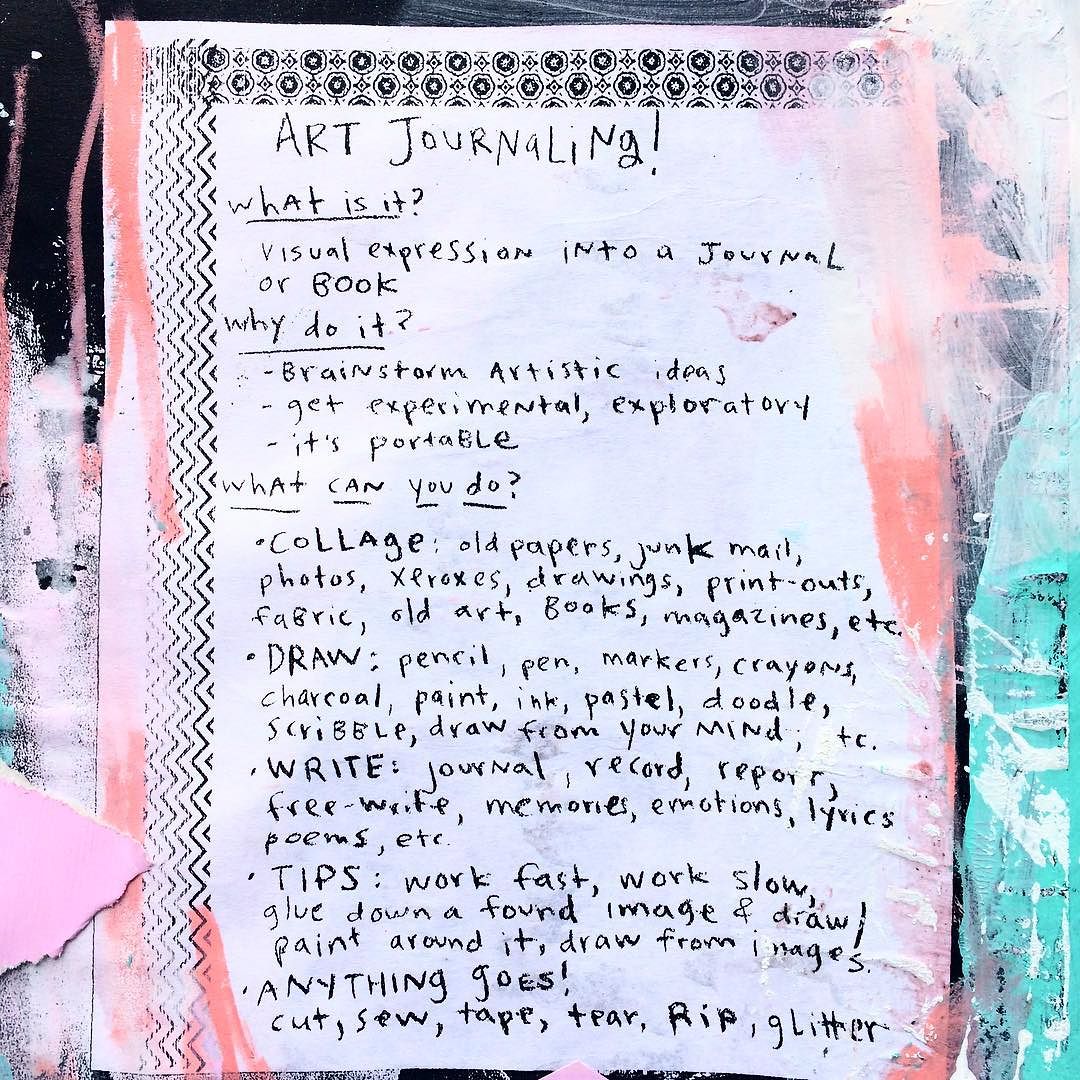 ART JOURNALING!
what is it?
visual expression into a Journal
or Book
why do it?
- Brainstorm Artistic ideas
- get experimental, exploratory
- it's portable
what can you do?
• COLLAGE: old papers, junk mail,
photos, xeroxes, drawings, print-outs,
fabric, old art, Books, magazines, etc.
• DRAW: pencil, pen, markers, crayons,
charcoal, paint, ink, pastel, doodle,
scribble, draw from your mind, tc.
• WRITE: journal, record, report,
free-write, memories, emotions, lyrics
poems, etc.
• TIPS: work fast, work slow,
glue down a found image & draw/
paint around it, draw from images.
• ANYTHING GOES!
cut, sew, tape, tear, Rip, glitter